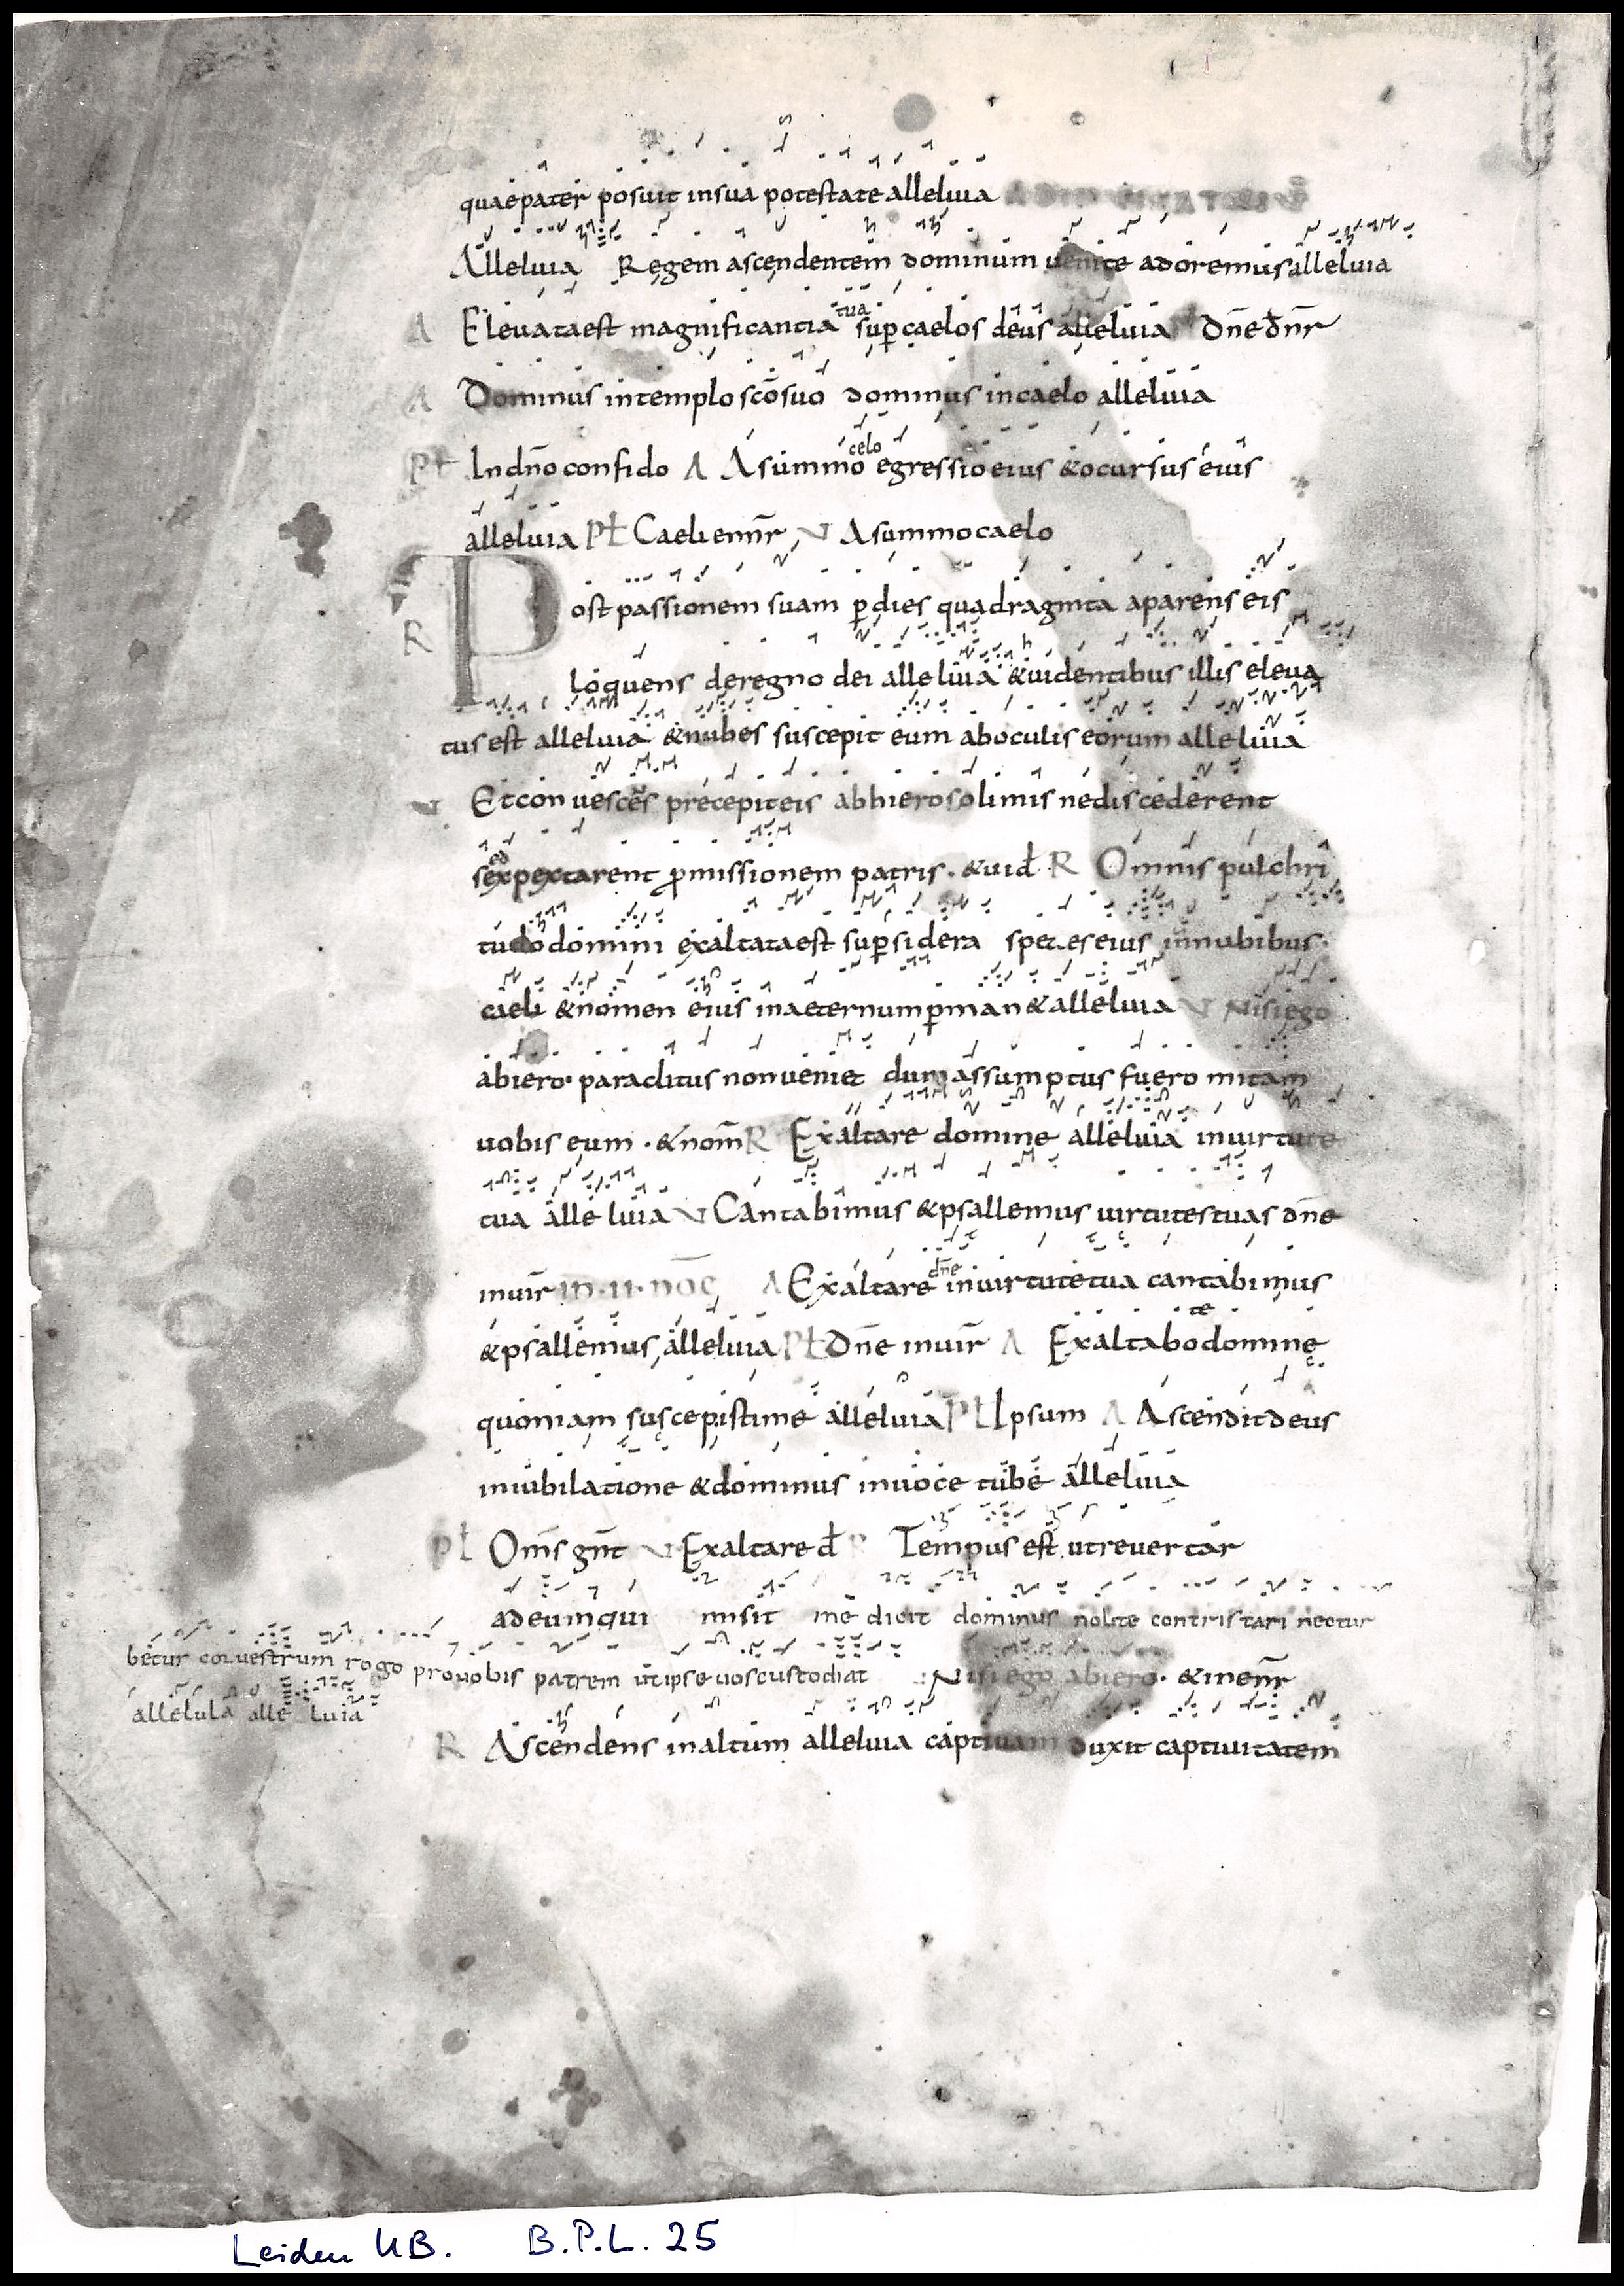 quae pater posuit in sua potestate alleluia
Alleluia Regem ascendentem dominum venite adoremus alleluia
A Eleuata est magnificantia tua sup caelos deus alleluia dn̄e dn̄r
A Dominus in templo scō suo dominus in caelo alleluia
Pł In dn̄o confido A A summo celo egressio eius & ocursus eius
alleluia Pł Caeli enn̄r V A summo caelo
R Post passionem suam p̱ dies quadraginta aparens eis
loquens de regno dei alleluia & uidentibus illis eleua
tus est alleluia & nubes suscepit eum ab oculis eorum alleluia
V Et conuesces precepit eis ab hierosolimis ne discederent
sed expextarent p̱missionem patris · & uid R Omnis pulchri
tudo domini exaltata est sup sidera species eius in nubibus
caeli & nomen eius in aeternum p̱man& alleluia V Nisi ego
abiero · paraclitus non ueniet dum assumptus fuero mitam
uobis eum · & nom̄ R Exaltare domine alleluia in uirtute
tua alleluia V Cantabimus & psallemus uirtutes tuas dn̄e
in uir̄ IN · II · NOC̄ A Exaltare dn̄e in uirtute tua cantabimus
& psallemus, alleluia Pł Dn̄e in uir̄ A Exaltabo te domine
quoniam suscepisti me alleluia Pł Ipsum A Ascendit deus
in iubilatione & dominus in uoce tube alleluia
Pł Om̄s gn̄t V Exaltare d R Tempus est ut reuertar
ad eum qui misit me dicit dominus nolite contristari nec tur
betur cor uestrum rogo pro uobis patrem ut ipse uos custodiat Nisi ego abiero · & menn̄r
allelula alle luia
R Ascendens in altum alleluia captiuam duxit captiuitatem
Leiden UB. B.P.L. 25